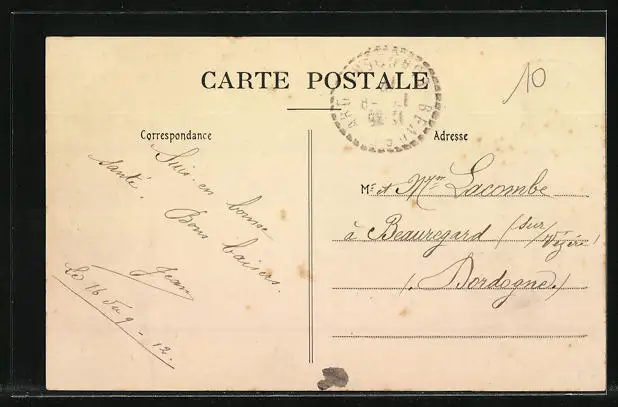 CARTE POSTALE
10
Correspondance
Adresse
Suis en bonne
santé.
Bons baisers
Jean
Le 16
9 - 12.
Mr et Mme Lacombe
à Beauregard (sur
Vézère)
(Dordogne.)